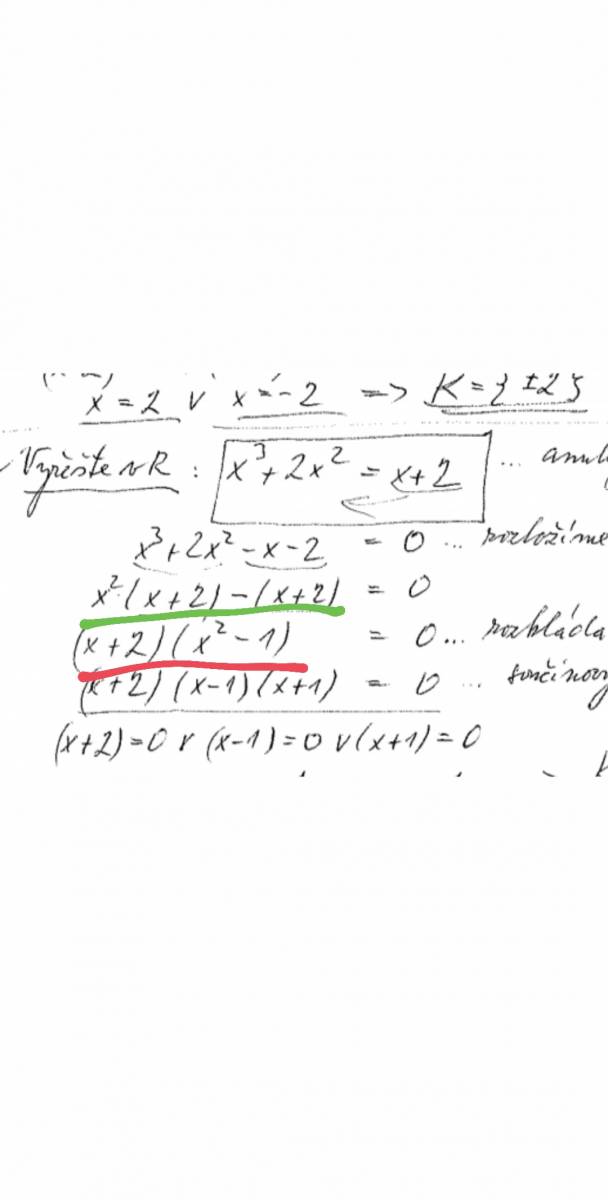 x = 2 ∨ x = -2 => K = {±2}
Vyřešte v R : x³ + 2x² = x + 2 ...
x³ + 2x² - x - 2 = 0 ... rozložíme
x² (x+2) - (x+2) = 0
(x+2) (x² - 1) = 0 ... rozkláda
(x+2) (x-1) (x+1) = 0 ... součinový
(x+2) = 0 ∨ (x-1) = 0 ∨ (x+1) = 0